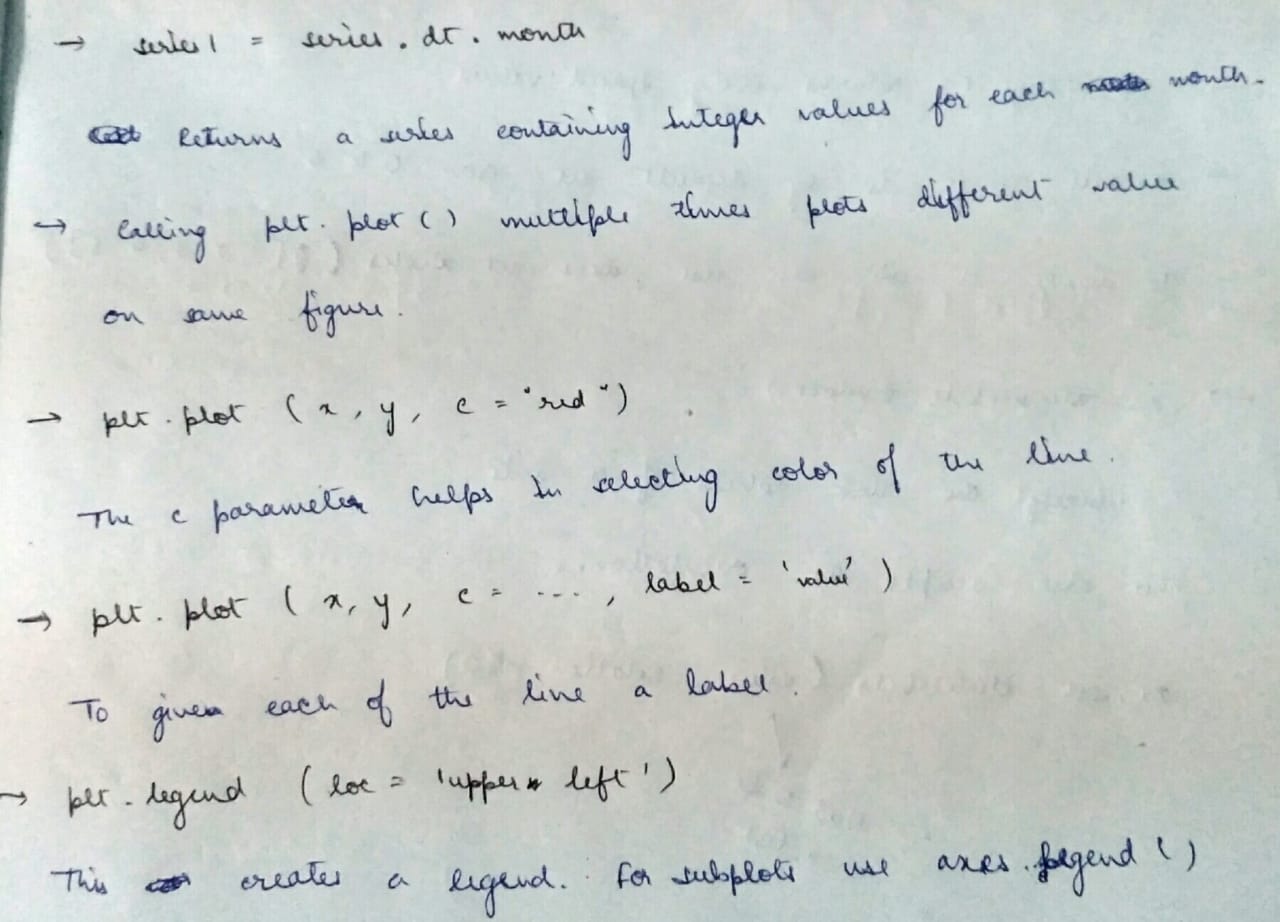 → series1 = series.dt.month
Returns a series containing Integer values for each month.
→ Calling plt.plot() multiple times plots different value
on same figure.
→ plt.plot (x, y, c = "red")
The c parameter helps in selecting color of the line.
→ plt.plot (x, y, c = ..., label = 'value')
To given each of the line a label.
→ plt.legend (loc = 'upper left')
This creates a legend. For subplots use axes.legend()